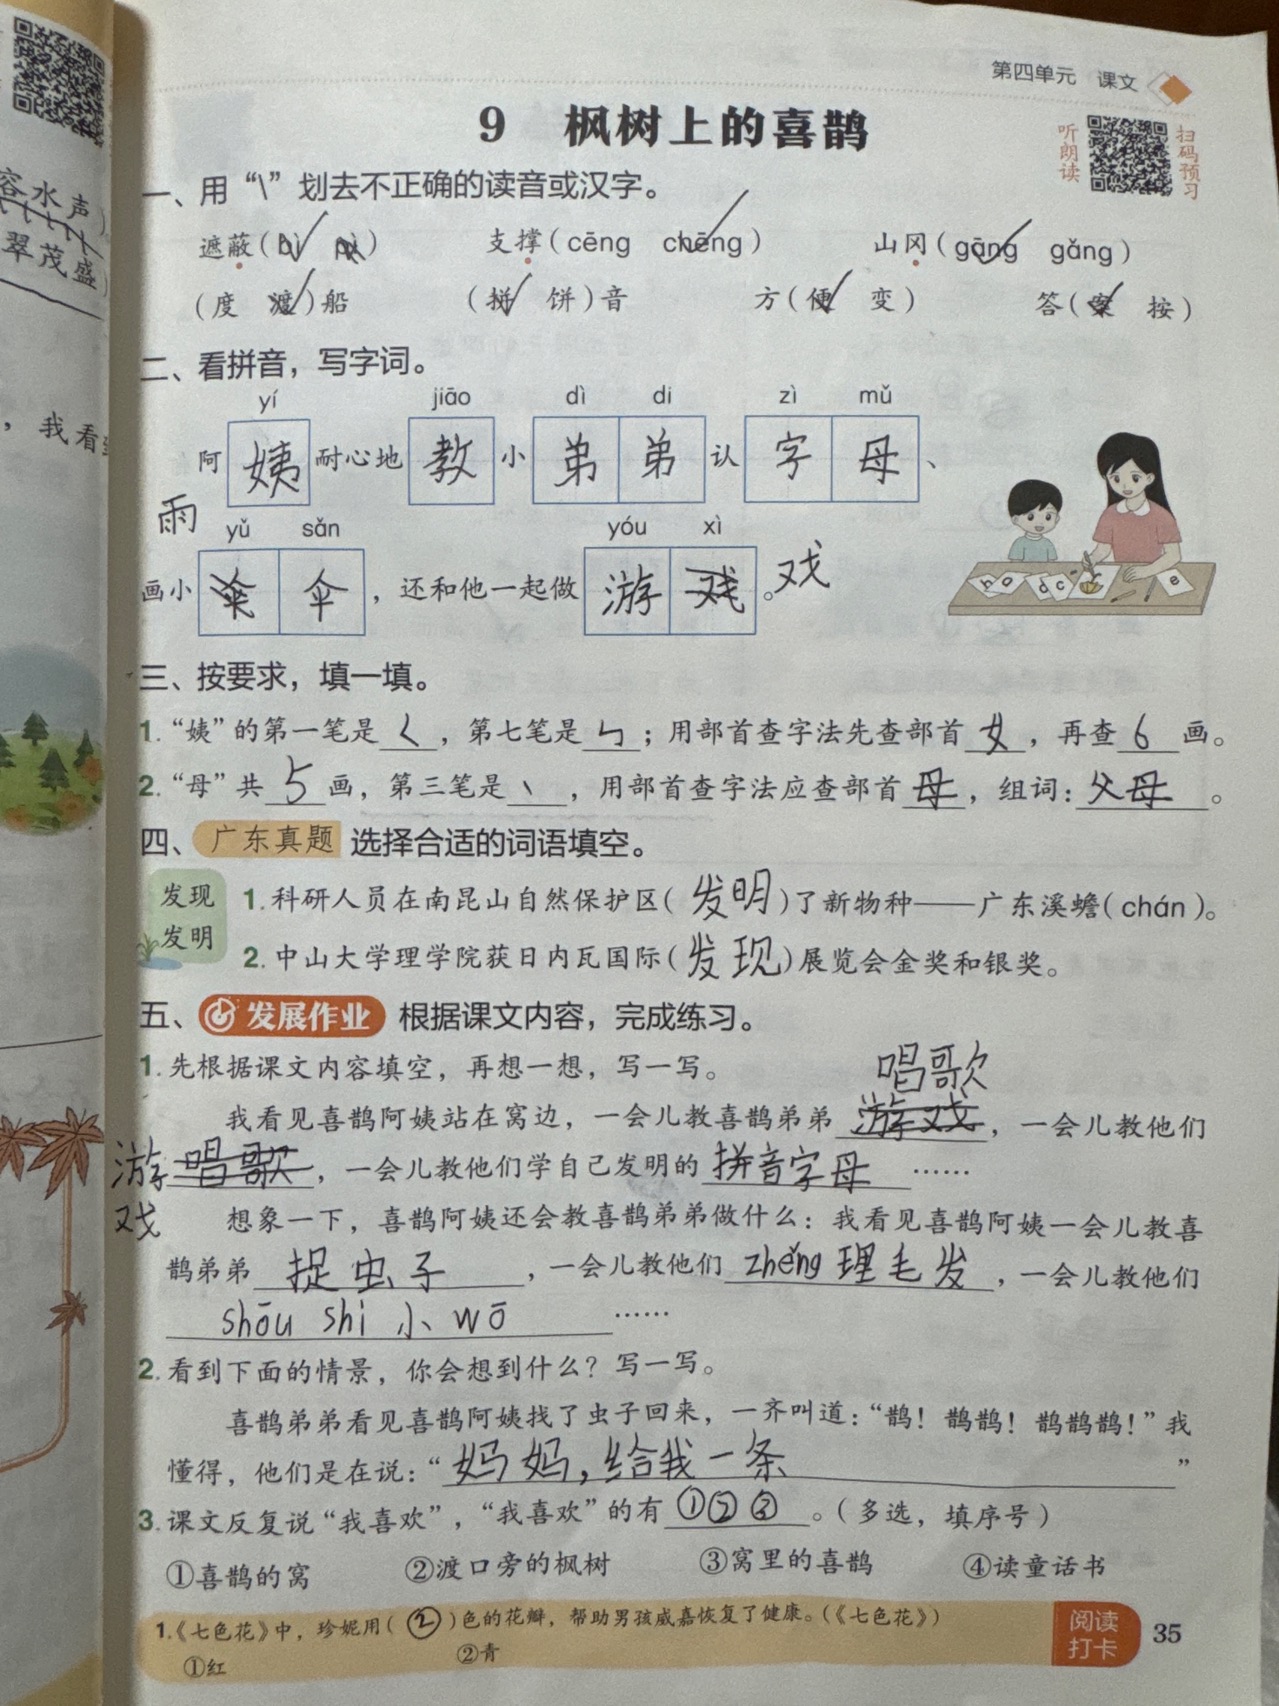 容水声)
翠茂盛)
，我看到
第四单元 课文
9 枫树上的喜鹊
听朗读
扫码预习
一、用“\”划去不正确的读音或汉字。
遮蔽(bì pì) 支撑(cēng chēng) 山冈(gāng gǎng)
(度 渡)船 (拼 饼)音 方(便 变) 答(案 按)
二、看拼音，写字词。
yí jiāo dì di zì mǔ
阿姨耐心地教小弟弟认字母、
雨
yǔ sǎn yóu xì
画小伞伞，还和他一起做游戏。戏
三、按要求，填一填。
1.“姨”的第一笔是ㄑ，第七笔是ㄣ；用部首查字法先查部首女，再查6画。
2.“母”共5画，第三笔是丶，用部首查字法应查部首母，组词：父母。
四、广东真题 选择合适的词语填空。
发现
发明
1.科研人员在南昆山自然保护区(发明)了新物种——广东溪蟾(chán)。
2.中山大学理学院获日内瓦国际(发现)展览会金奖和银奖。
五、发展作业 根据课文内容，完成练习。
1.先根据课文内容填空，再想一想，写一写。
唱歌
我看见喜鹊阿姨站在窝边，一会儿教喜鹊弟弟游戏，一会儿教他们
游戏 唱歌，一会儿教他们学自己发明的拼音字母……
想象一下，喜鹊阿姨还会教喜鹊弟弟做什么：我看见喜鹊阿姨一会儿教喜
鹊弟弟捉虫子，一会儿教他们zhěng理毛发，一会儿教他们
shōu shi 小 wō……
2.看到下面的情景，你会想到什么？写一写。
喜鹊弟弟看见喜鹊阿姨找了虫子回来，一齐叫道：“鹊！鹊鹊！鹊鹊鹊！”我
懂得，他们是在说：“妈妈，给我一条”
3.课文反复说“我喜欢”，“我喜欢”的有①②③。(多选，填序号)
①喜鹊的窝 ②渡口旁的枫树 ③窝里的喜鹊 ④读童话书
1.《七色花》中，珍妮用(②)色的花瓣，帮助男孩威嘉恢复了健康。(《七色花》)
①红 ②青
阅读打卡
35